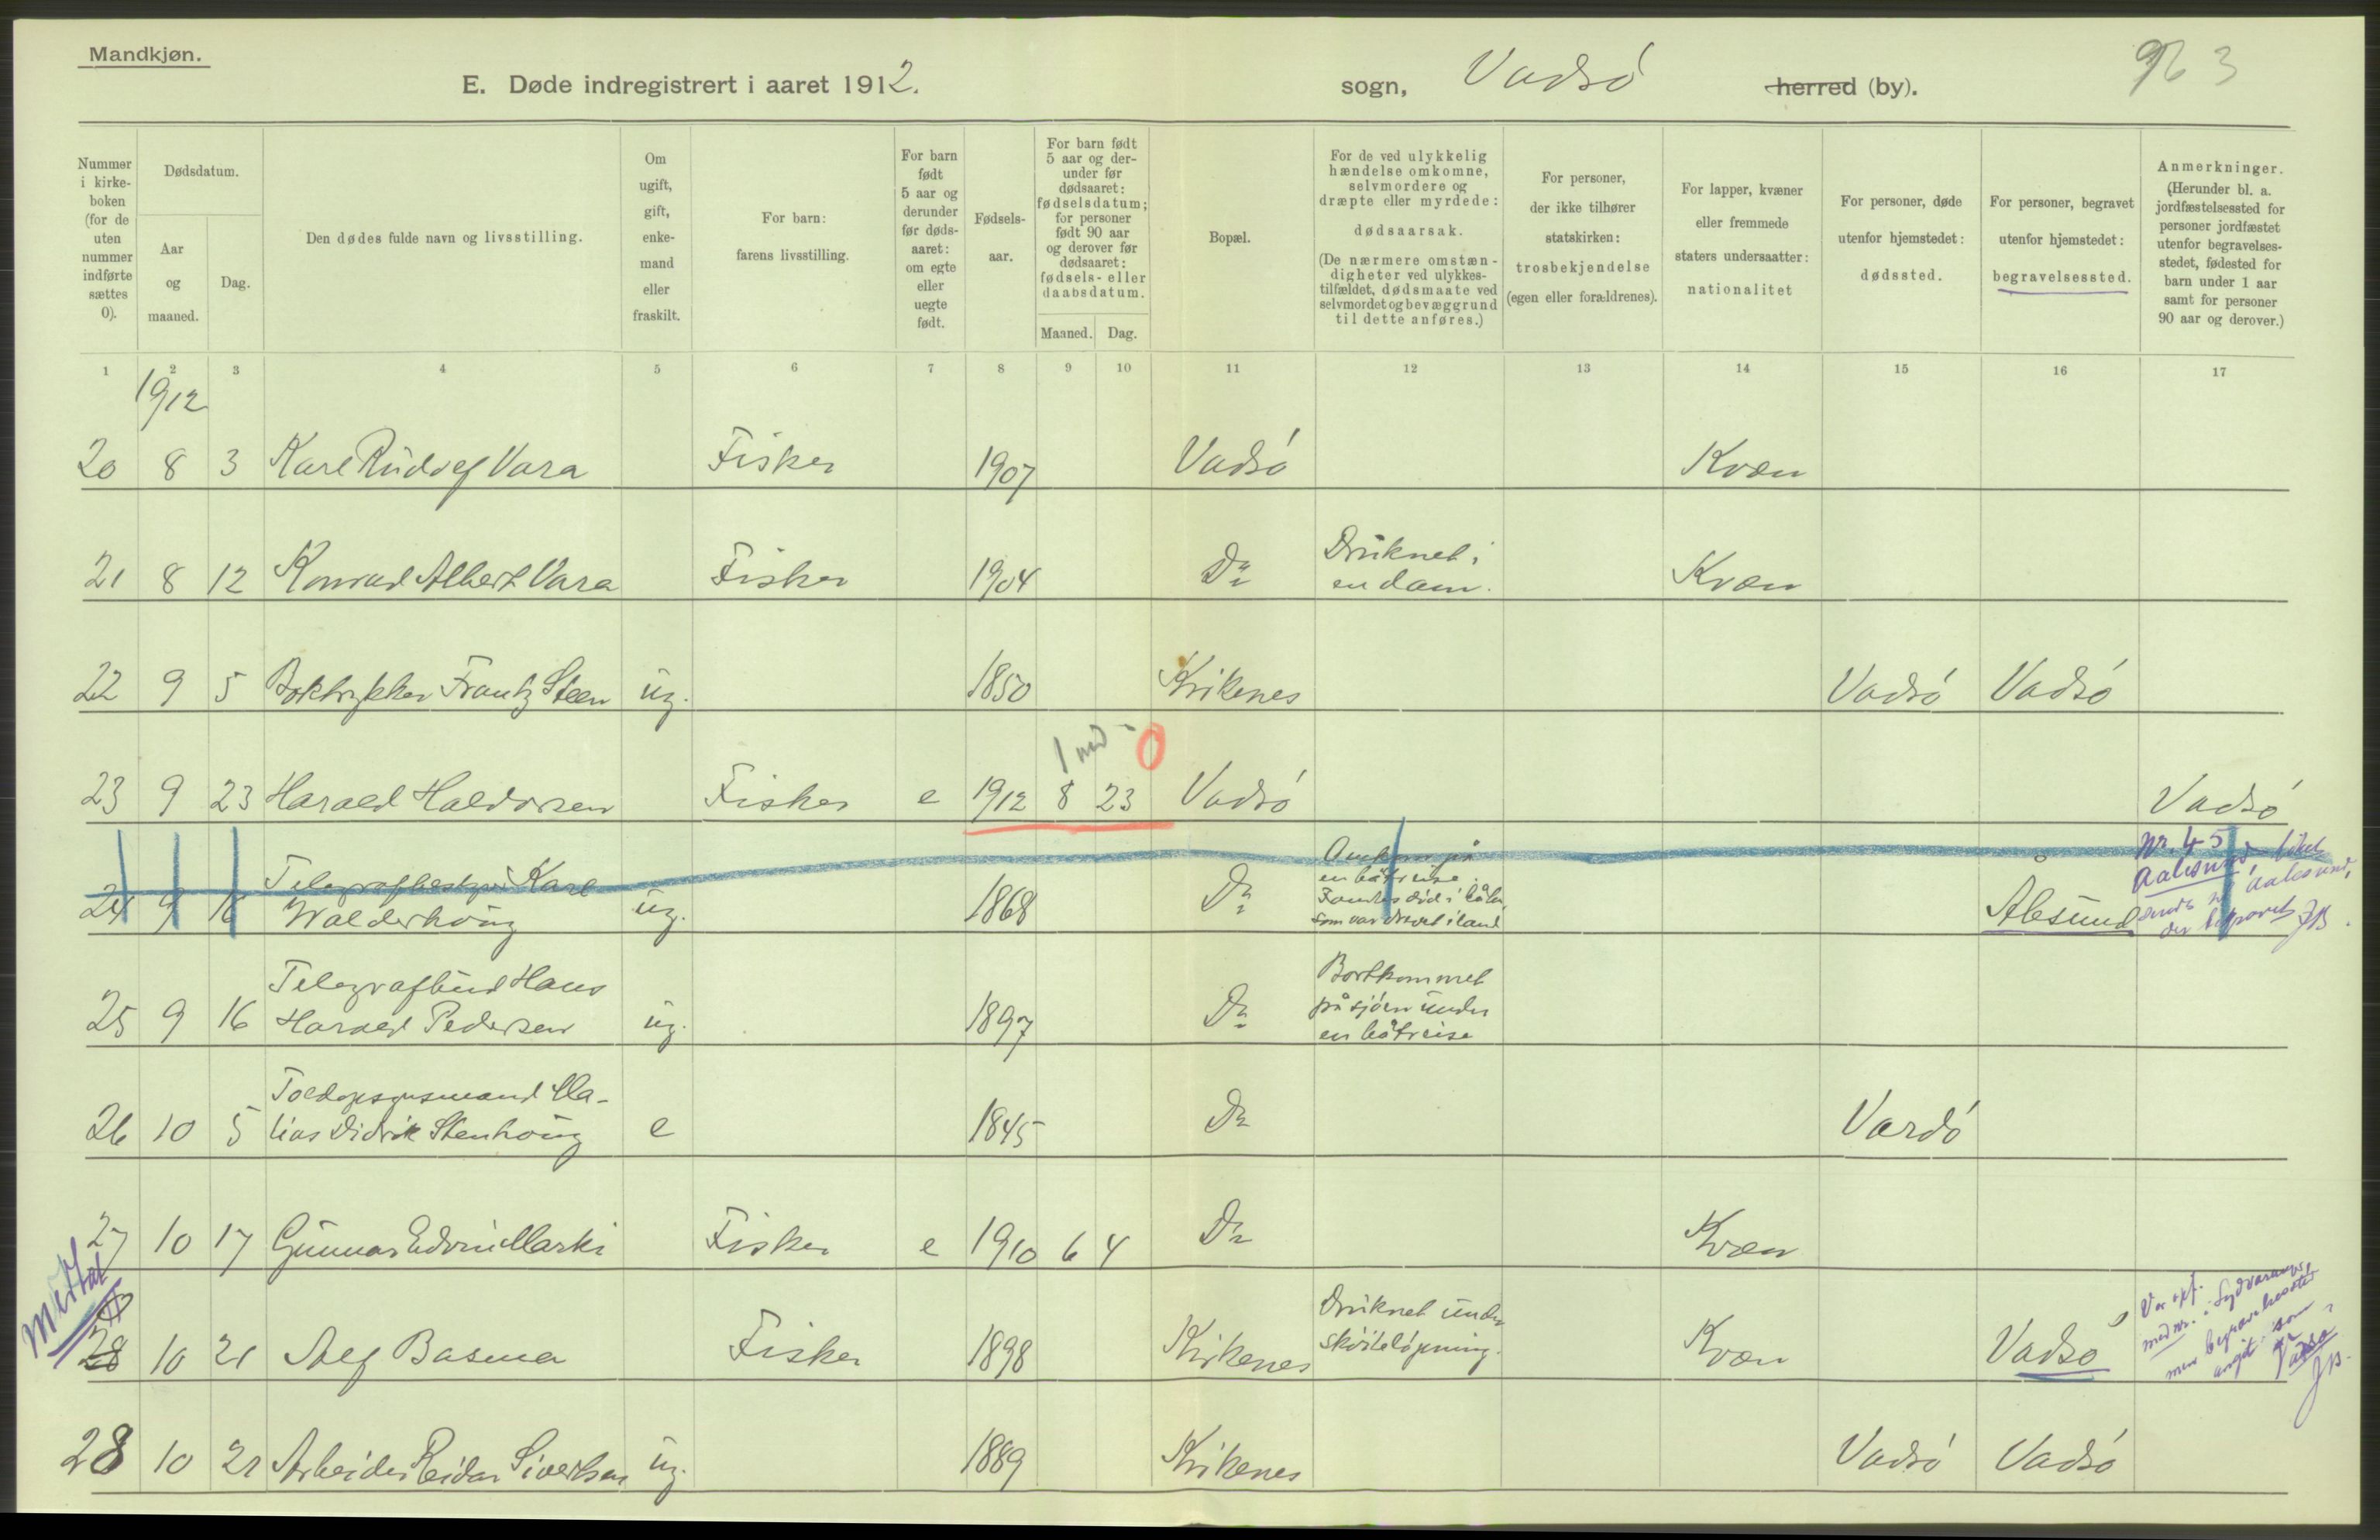 Mandkjøn.
E. Døde indregistrert i aaret 1912. sogn, Vadsö herred (by). 963
Nummer i kirkeboken (for de uten nummer indførte sættes 0).
Dødsdatum.
Aar og maaned.
Dag.
Den dødes fulde navn og livsstilling.
Om ugift, gift, enkemand eller fraskilt.
For barn: farens livsstilling.
For barn født 5 aar og derunder før dødsaaret: om egte eller uegte født.
Fødselsaar.
For barn født 5 aar og derunder før dødsaaret: fødselsdatum; for personer født 90 aar og derover før dødsaaret: fødsels- eller daabsdatum.
Maaned. Dag.
Bopæl.
For de ved ulykkelig hændelse omkomne, selvmordere og dræpte eller myrdede: dødsaarsak. (De nærmere omstændigheter ved ulykkestilfældet, dødsmaate ved selvmordet og bevæggrund til dette anføres.)
For personer, der ikke tilhører statskirken: trosbekjendelse (egen eller forældrenes).
For lapper, kvæner eller fremmede staters undersaatter: nationalitet
For personer, døde utenfor hjemstedet: dødssted.
For personer, begravet utenfor hjemstedet: begravelsessted.
Anmerkninger. (Herunder bl. a. jordfæstelsessted for personer jordfæstet utenfor begravelsesstedet, fødested for barn under 1 aar samt for personer 90 aar og derover.)
1 2 3 4 5 6 7 8 9 10 11 12 13 14 15 16 17
1912
20 8 3 Karl Rudolf Vara Fisker 1907 Vadsö Kvæn
21 8 12 Konrad Albert Vara Fisker 1904 Do Druknet i
en dam. Kvæn
22 9 5 Boktrykker Frantz Steen ug. 1850 Kirkenes Vadsö Vadsö
1 md 0
23 9 23 Harald Haldorsen Fisker e 1912 8 23 Vadsö Vadsö
24 9 16 Telegrafbestyrer Karl
Walderhoug ug. 1868 Do Omkom på
en båtreise.
Fandtes död i båten,
som var drevet i land Ålesund
Nr. 45
Aalesund,
25 9 16 Telegrafbud Hans
Harald Pedersen ug. 1897 Do Bortkommet
på sjöen under
en båtreise
26 10 5 Toldopsynsmand Ma-
tias Didrik Stenhoug e 1845 Do Vardö
27 10 17 Gunnar Edvin Marki Fisker e 1910 6 4 Do Kvæn
28 10 21 Alf Basma Fisker 1898 Kirkenes Druknet under
sköitelöpning. Kvæn Vadsö
28 10 21 Arbeider Reidar Sivertsen ug. 1889 Kirkenes Vadsö Vadsö